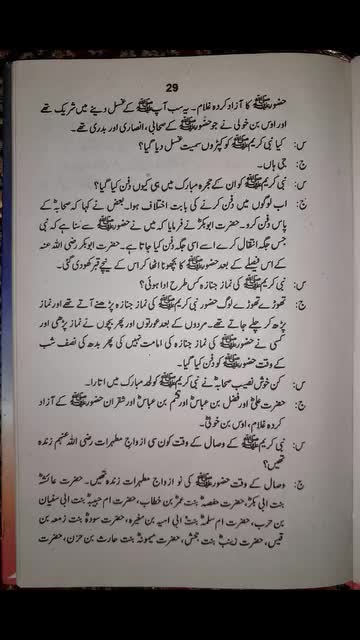 29
حضور ﷺ کا آزاد کردہ غلام۔ یہ سب آپ ﷺ کے غسل دینے میں شریک تھے
اور اوس بن خولی نے جو حضور ﷺ کے صحابی، انصاری اور بدری تھے۔
س: کیا نبی کریم ﷺ کو کپڑوں سمیت غسل دیا گیا؟
ج: جی ہاں۔
س: نبی کریم ﷺ کو ان کے حجرہ مبارک میں ہی کیوں دفن کیا گیا؟
ج: اب لوگوں میں دفن کرنے کی بابت اختلاف ہوا۔ بعض نے کہا کہ صحابہؓ کے
پاس دفن کرو۔ حضرت ابوبکرؓ نے فرمایا کہ میں نے حضور ﷺ سے سنا ہے کہ نبی
جس جگہ انتقال کرے اسے اسی جگہ دفن کیا جاتا ہے۔ حضرت ابوبکر رضی اللہ عنہ
کے اس فیصلے کے بعد حضور ﷺ کا بچھونا اٹھا کر اس کے نیچے قبر کھودی گئی۔
س: نبی کریم ﷺ کی نماز جنازہ کس طرح ادا ہوئی؟
ج: تھوڑے تھوڑے لوگ حضور نبی کریم ﷺ کی نماز جنازہ پڑھنے آتے تھے اور نماز
پڑھ کر چلے جاتے تھے۔ مردوں کے بعد عورتوں اور پھر بچوں نے نماز پڑھی اور
کسی نے حضور ﷺ کی نماز جنازہ کی امامت نہیں کی پھر بدھ کی نصف شب
کے وقت حضور ﷺ کو دفن کیا گیا۔
س: کن خوش نصیب صحابہؓ نے نبی کریم ﷺ کو لحد مبارک میں اتارا۔
ج: حضرت علیؓ اور فضل بن عباسؓ اور قثم بن عباسؓ اور شقران حضور ﷺ کے آزاد
کردہ غلام، اوس بن خولیؓ۔
س: نبی کریم ﷺ کے وصال کے وقت کون سی ازواج مطہرات رضی اللہ عنہم زندہ
تھیں؟
ج: وصال کے وقت حضور ﷺ کی نو ازواج مطہرات زندہ تھیں۔ حضرت عائشہؓ
بنت ابی بکرؓ، حضرت حفصہؓ بنت عمرؓ بن خطاب، حضرت ام حبیبہؓ بنت ابی سفیان
بن حرب، حضرت ام سلمہؓ بنت ابی امیہ بن مغیرہ، حضرت سودہؓ بنت زمعہ بن
قیس، حضرت زینبؓ بنت جحش، حضرت میمونہؓ بنت حارث بن حزن، حضرت